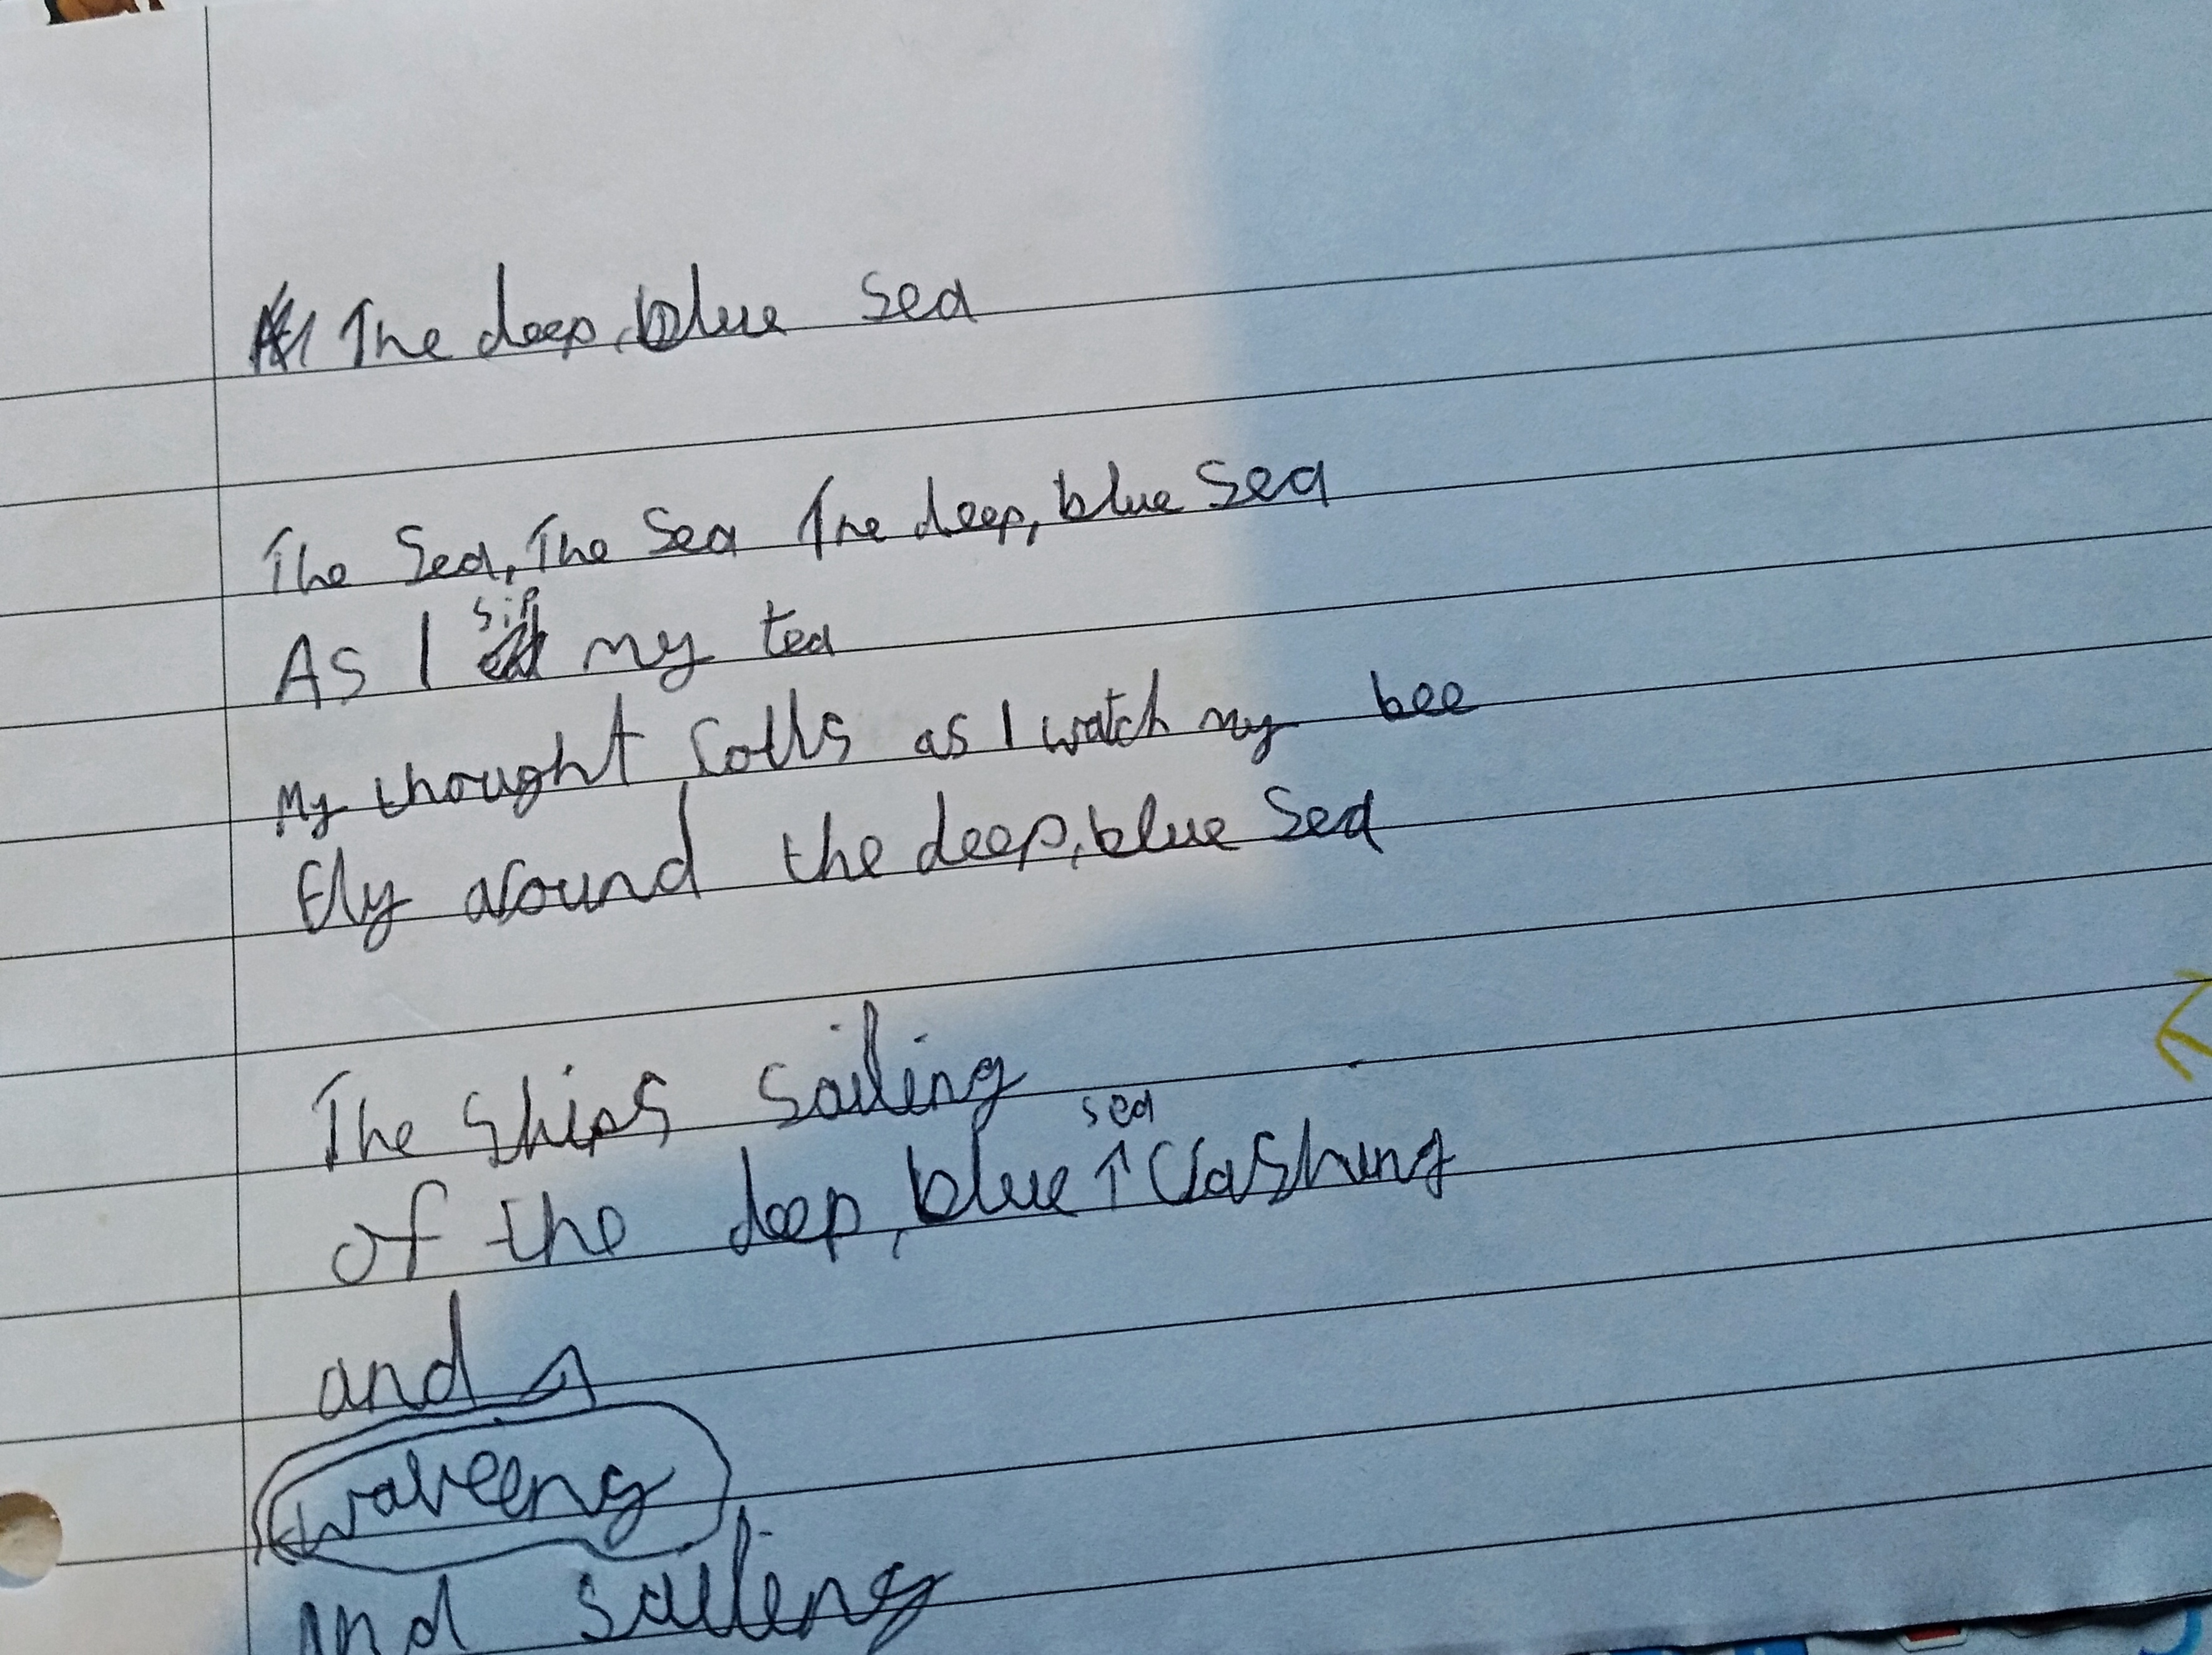 The deep, blue sea
The Sea, The Sea The deep, blue Sea
As I sip my tea
My thought as I watch my bee
fly around the deep, blue Sea
The ships sailing
of the deep, blue sea Clashing
and
waveing
and sailing